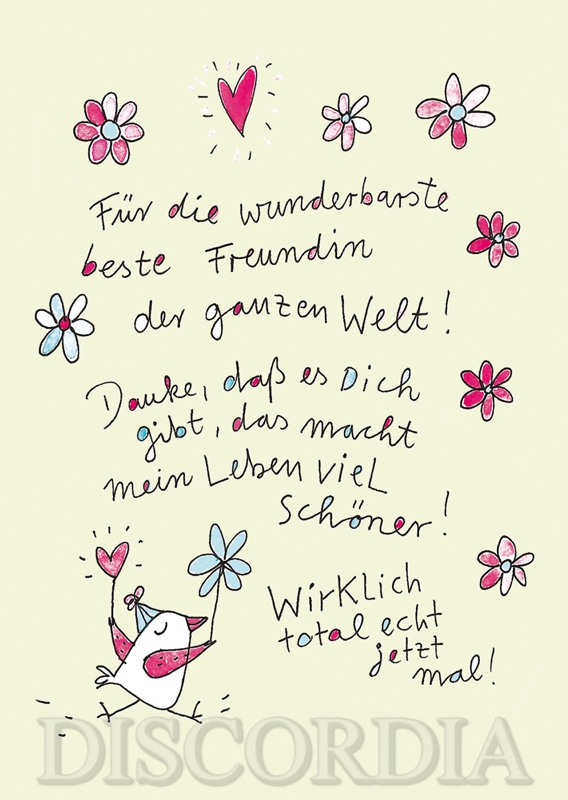 Für die wunderbarste
beste Freundin
der ganzen Welt!
Danke, daß es Dich
gibt, das macht
mein Leben viel
Schöner!
Wirklich
total echt
jetzt
mal!
DISCORDIA